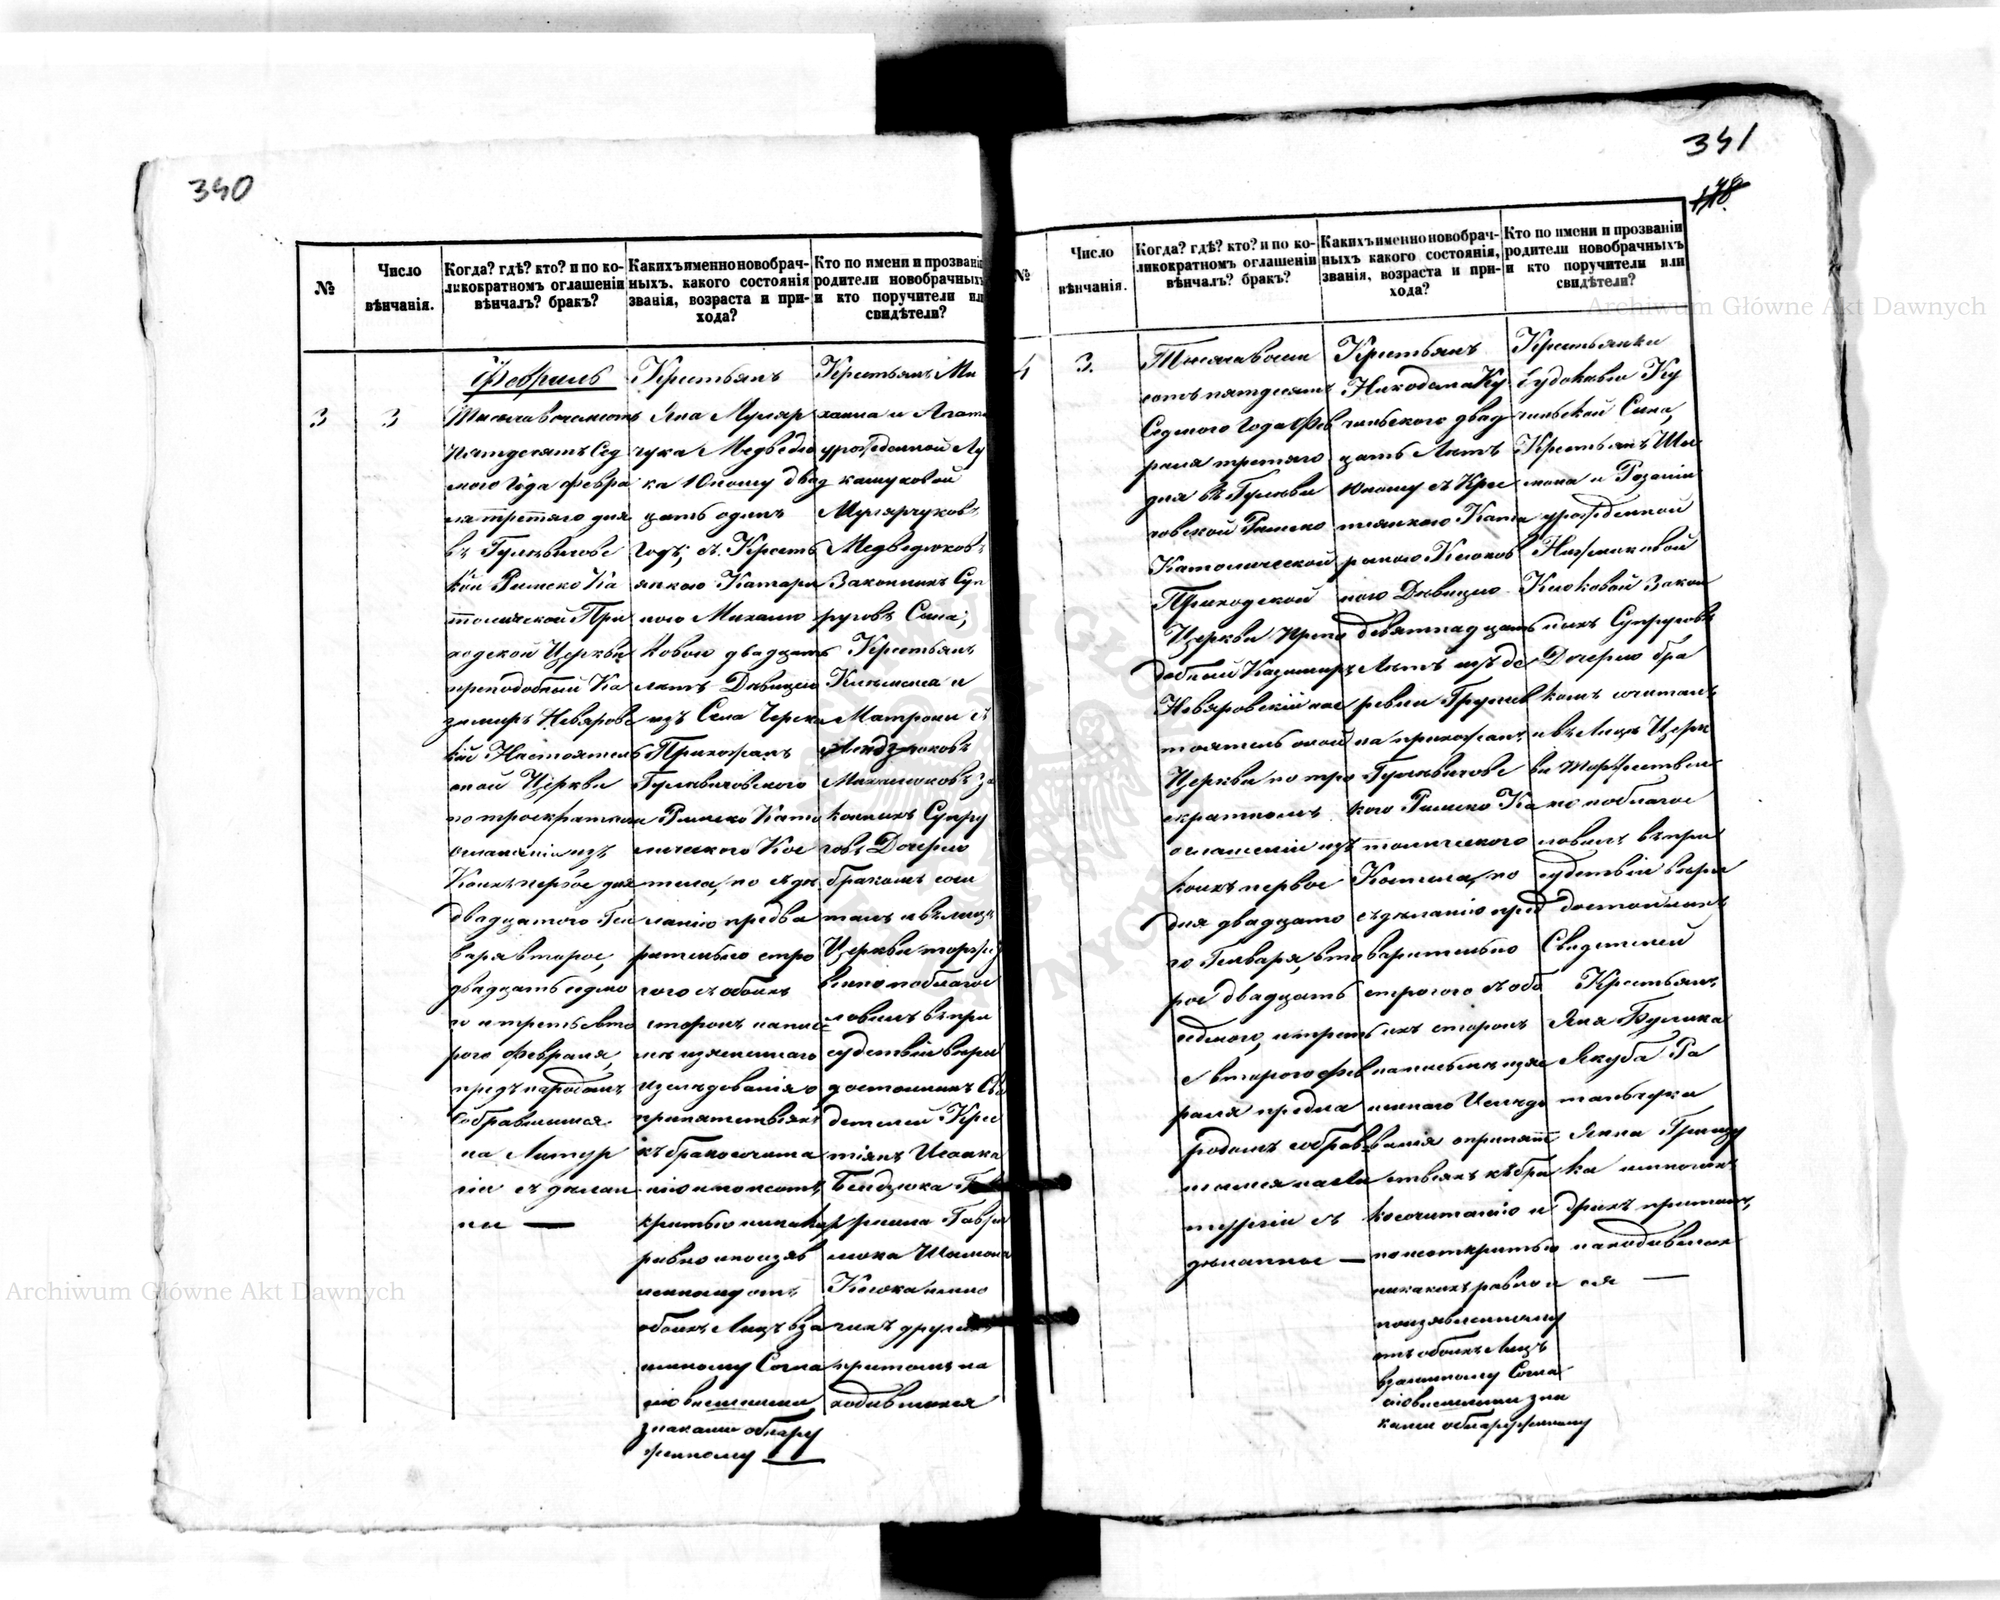 340
№
Число
вѣнчанія.
Когда? гдѣ? кто? и по ко-
ликократномъ оглашеніи
вѣнчалъ? бракъ?
Какихъ именно новобрач-
ныхъ. какого состоянія
званія, возраста и при-
хода?
Кто по имени и прозванію
родители новобрачныхъ
и кто поручители или
свидѣтели?
3
3
Февраль
Тысяча восемсотъ
пятдесятъ Сед
мого Года февра
ля третяго дня
въ Гульбинове
кой Римско Ка
толической При
ходской Церкви
преподобный Ка
зимиръ Невяровс
кій Настоятель
оной Церкви
по троекратномъ
оглашеніи изъ
Коихъ первое дня
двадцатого Ген
варя второе,
двадцать седмо
го и третье вто
рого февраля,
предъ народомъ
Собравшимся
на Литур
гіи сдѣлан
ны —
Крестьянъ
Яна Муляр
чука Медведю
ка Юношу двад
цать одинъ
Годъ, съ Кресть
янкою Катари
ною Михалю
ковою двадцать
лѣтъ Дѣвицею
изъ Села Череж
Прихожанъ
Римско Като
лическаго Кос
тела, по сдѣ
ланію предва
рительно стро
гого съ обоихъ
сторонъ написъ
мѣ изясненнаго
изслѣдованія о
препятствіяхъ
къ бракосочета
нію и по неот
крытью никакихъ
равно и по изяв
ленному отъ
обоихъ Лицъ вза
имному Согла
сію внешними
знаками обнару
женному —
Крестьянъ Ми
хаила и Агаты
урожденной Лу
кашуковой
Мулярчуковъ
Медведюковъ
Законныхъ Суп
руговъ Сына,
Крестьянъ
Климента и
Матроны съ
Михалюковъ за
конныхъ Супру
говъ Дочерью
бракомъ соче
талъ и въ лицѣ
Церкви торжест
венно поблагос
ловилъ въ при
судствіи вѣри
достойныхъ Сви
детелей Крес
тіянъ Исаака
Бендзюка
люка Шимона
Клюка и мно
гихъ другихъ
притомъ на
ходившихся
341
178.
№
Число
вѣнчанія.
Когда? гдѣ? кто? и по ко-
ликократномъ оглашеніи
вѣнчалъ? бракъ?
Какихъ именно новобрач-
ныхъ какого состоянія,
званія, возраста и при-
хода?
Кто по имени и прозванію
родители новобрачныхъ
и кто поручители или
свидѣтели?
4
3.
Тысяча восем
сотъ пятдесятъ
Седмого Года Фев
раля третяго
дня въ
Римско
Католической
Приходской
Церкви Препо
добный Казимиръ
Невяровскій нас
тоятель оной
Церкви по тро
екратномъ
оглашеніи изъ
коихъ первое
дня двадцато
го Генваря, вто
рое двадцать
седмого, и треть
е второго фев
раля предъ на
родомъ собрав
шимся на Ли
тургіи с
дѣланны —
Крестьянъ
Никодима Ку
чинского двад
цать Лѣтъ
Юношу съ Крес
тянкою Ката
риною Клюков
ною Дѣвицею
девятнадцать
Лѣтъ изъ де
ревни
на прихожанъ
кого Римско Ка
толического
Костела, по
сдѣланію пред
варительно
строгого съ обо
ихъ сторонъ
написьмѣ изяс
неннаго Изслѣдо
ванія о препят
ствіяхъ къ бра
косочитанію и
по неоткрытью
никакихъ равно и
по изявленному
отъ обоихъ Лицъ
взаимному Согла
сію внешними зна
ками обнаруженному
Крестьянки
Евдокіи Ку
чинской Сына,
Крестьянъ Ши
мона и Розаліи
урожденной
Клюковой Закон
ныхъ Супруговъ
Дочерью бра
комъ сочиталъ
и въ Лицѣ Церк
ви торжествен
но поблагос
ловилъ въ при
судствіи вѣри
достойныхъ
Свидетелей
Крестьянъ
Яна
Якуба Ра
тайчука
Яна Грицу
ка и многихъ
другихъ притомъ
находивших
ся —
Archiwum Główne Akt Dawnych
Archiwum Główne Akt Dawnych